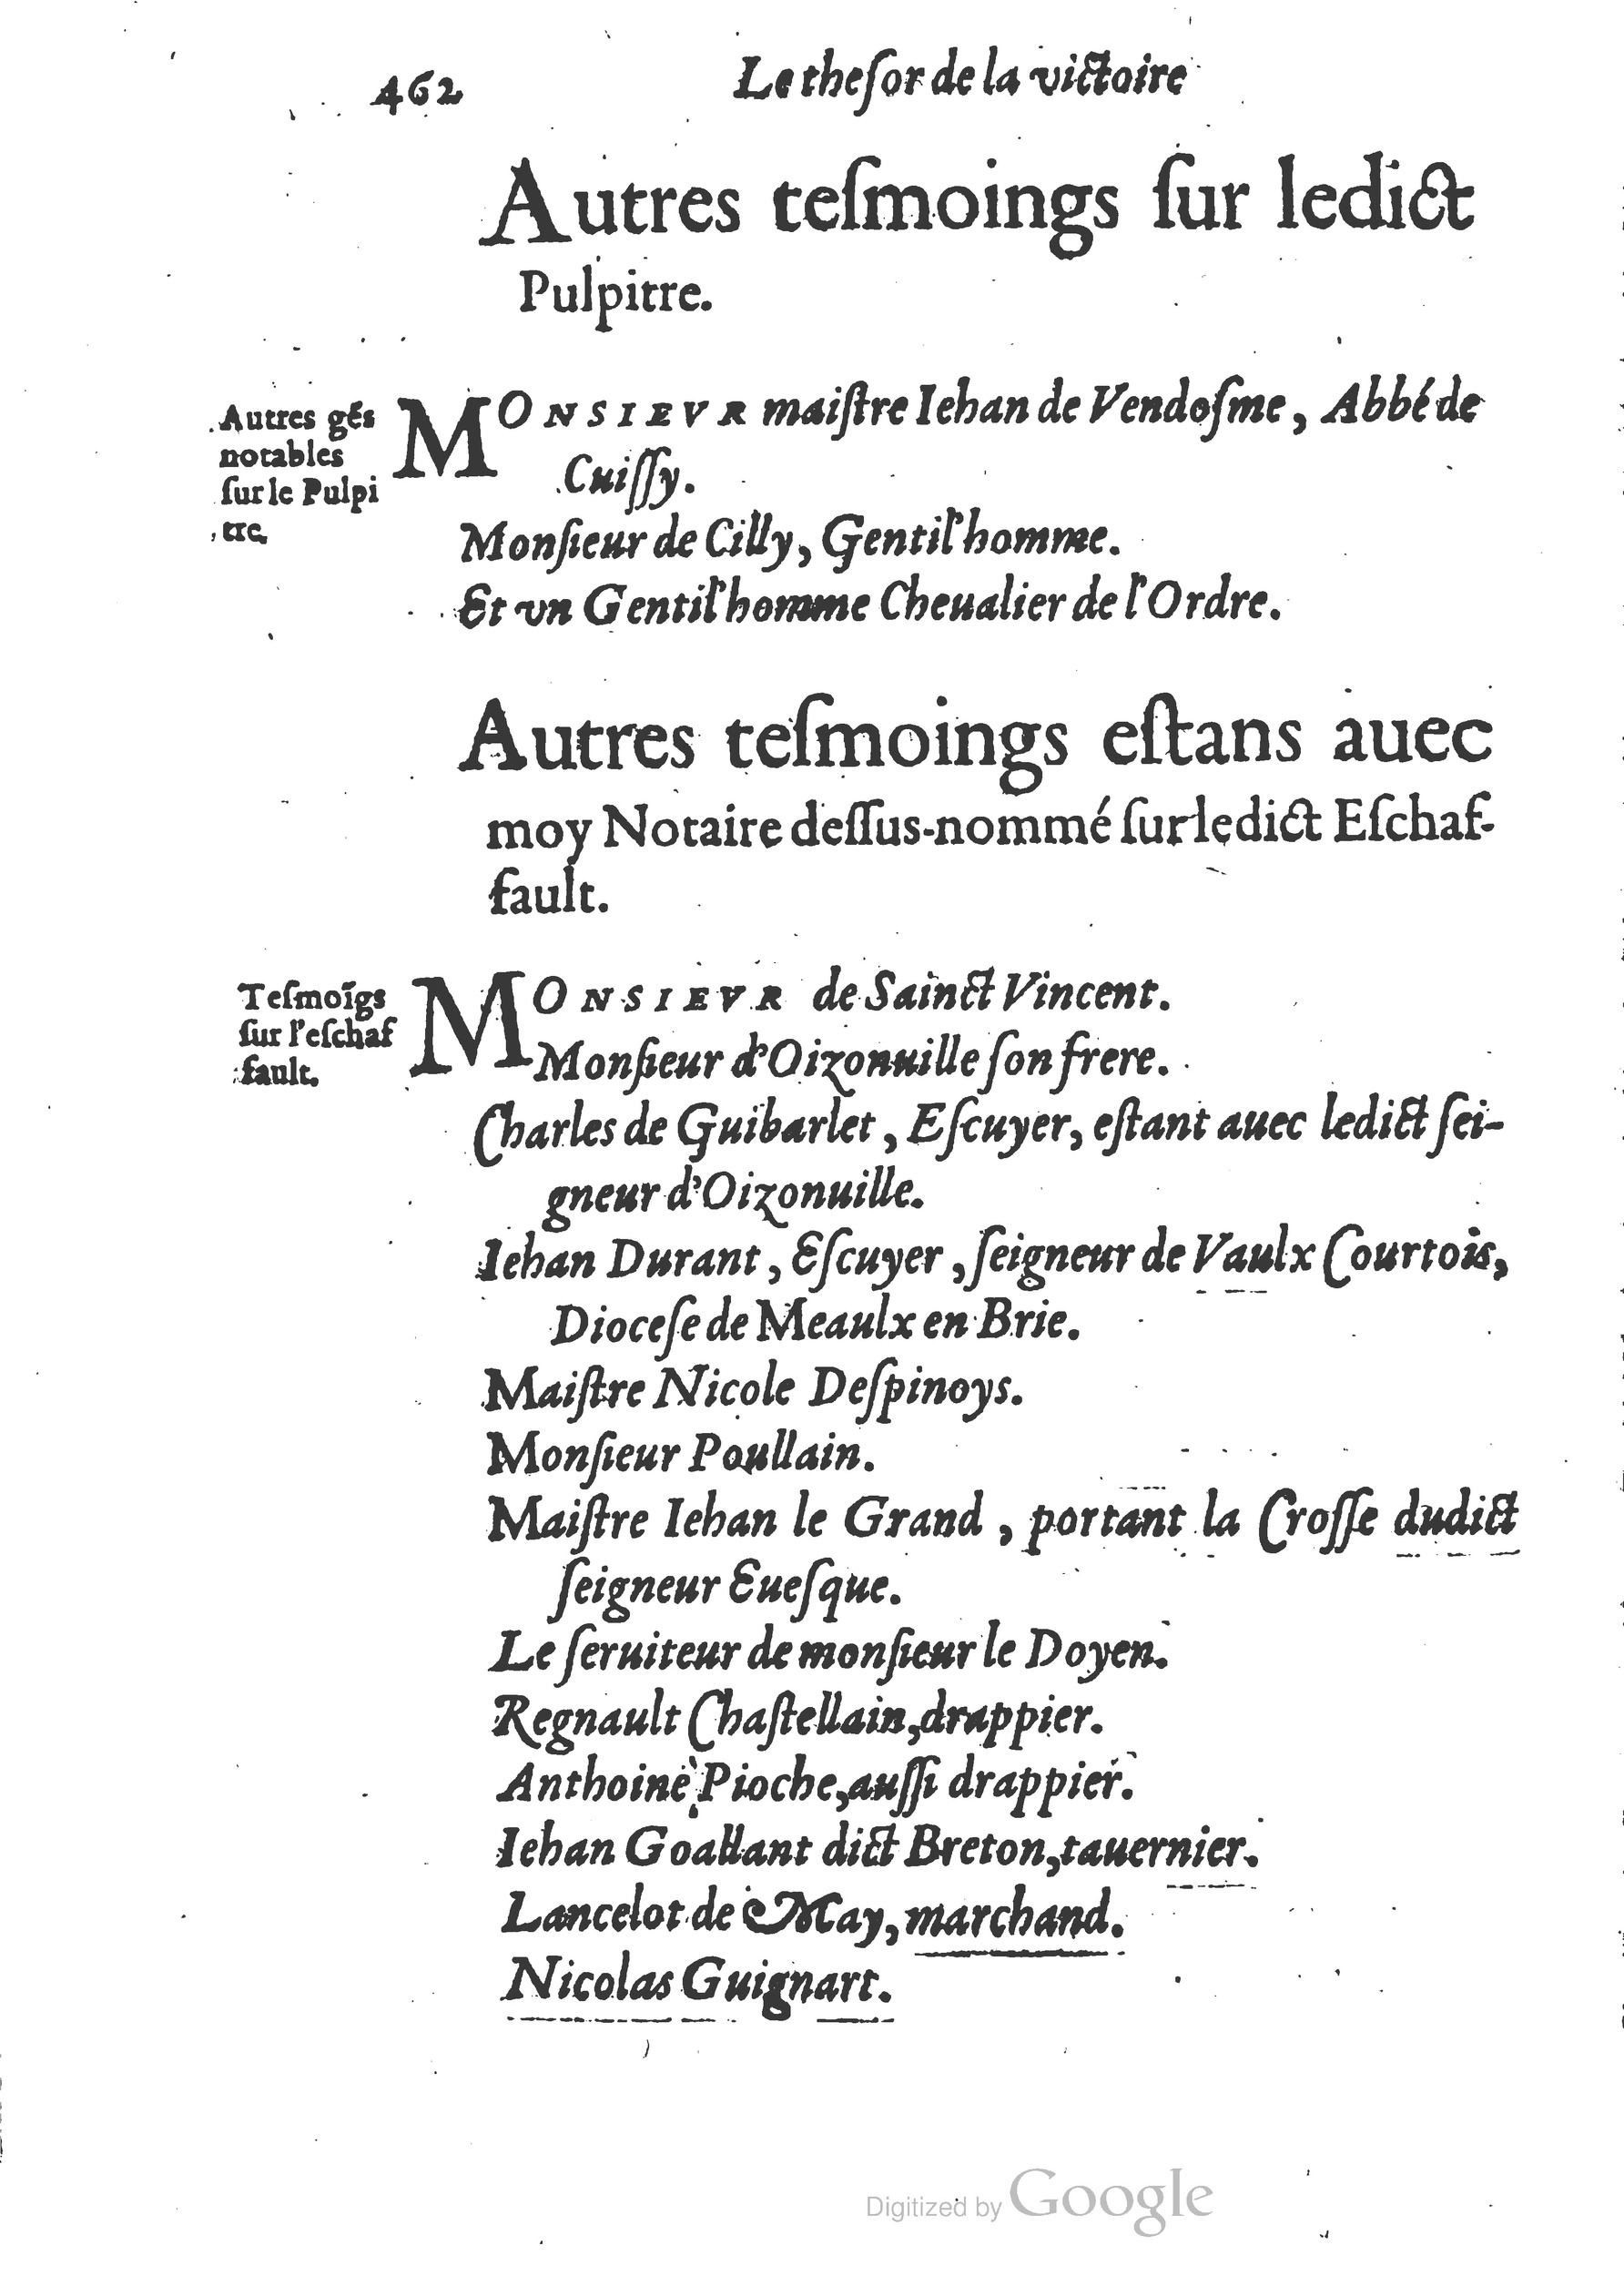 462 Le theſor de la victoire
Autres teſmoings ſur ledict
Pulpitre.
Autres gẽs
notables
ſur le Pulpi
tre.
MONSIEVR maiſtre Iehan de Vendoſme, Abbé de
Cuiſſy.
Monſieur de Cilly, Gentil'homme.
Et vn Gentil'homme Cheualier de l'Ordre.
Autres teſmoings eſtans auec
moy Notaire deſſus-nommé ſur ledict Eſchaf-
fault.
Teſmoĩgs
ſur l'eſchaf
fault.
MONSIEVR de Sainct Vincent.
Monſieur d'Oizonuille ſon frere.
Charles de Guibarlet, Eſcuyer, eſtant auec ledict ſei-
gneur d'Oizonuille.
Iehan Durant, Eſcuyer, ſeigneur de Vaulx Courtois,
Dioceſe de Meaulx en Brie.
Maiſtre Nicole Deſpinoys.
Monſieur Poullain.
Maiſtre Iehan le Grand, portant la Croſſe dudict
ſeigneur Eueſque.
Le ſeruiteur de monſieur le Doyen.
Regnault Chaſtellain, drappier.
Anthoine Pioche, auſſi drappier.
Iehan Goallant dict Breton, tauernier.
Lancelot de May, marchand.
Nicolas Guignart.
Digitized by Google